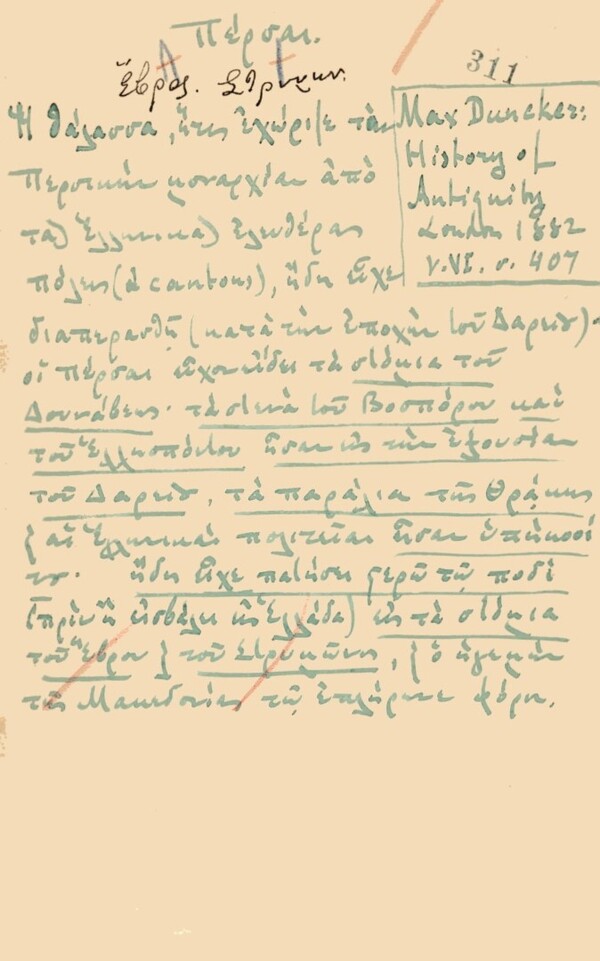 Πέρσαι.
311
Ἕβρος. Στρυμών.
Max Duncker:
History of
Antiquity
London 1882
v. VI. σ. 407
Ἡ θάλασσα, ἥτις ἐχώριζε τὴν
Περσικὴν μοναρχίαν ἀπὸ
τὰς Ἑλληνικὰς ἐλευθέρας
πόλεις (ἢ cantons), ἤδη εἶχε
διαπερασθῇ (κατὰ τὴν ἐποχὴν τοῦ Δαρείου)·
οἱ Πέρσαι εἶχον ἴδει τὰ στόμια τοῦ
Δουνάβεως· τὰ στενὰ τοῦ Βοσπόρου καὶ
τοῦ Ἑλλησπόντου ἦσαν εἰς τὴν ἐξουσίαν
τοῦ Δαρείου, τὰ παράλια τῆς Θρᾴκης
καὶ αἱ Ἑλληνικαὶ πολιτεῖαι ἦσαν ὑπήκοοί
του· ἤδη εἶχε πατήσει ξερῷ τῷ ποδὶ
(πρὶν ἢ εἰσβάλει εἰς Ἑλλάδα) εἰς τὰ στόμια
τοῦ Ἕβρου καὶ τοῦ Στρυμῶνος, καὶ ὁ ἡγεμὼν
τῆς Μακεδονίας τῷ ἐπλήρωνε φόρον.